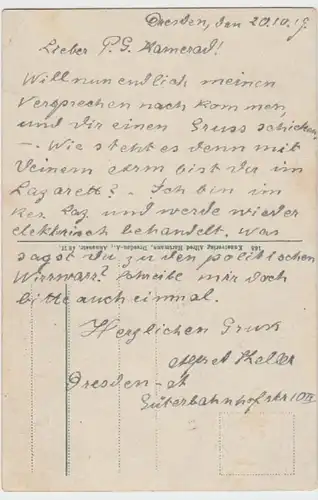 Dresden, den 20.10.19.
Lieber P.G. Kamerad!
Will nun endlich meinen
Versprechen nach kommen,
und dir einen Gruss schicken,
–. Wie steht es denn mit
Deinem Arm bist du im
Lazarett? – Ich bin im
Res. Laz und werde wieder
elektrisch behandelt. Was
sagst du zu den politischen
Wirrwarr? Schreibe mir doch
bitte auch einmal.
Herzlichen Gruss
Alfred Keller
Dresden – A
Güterbahnhofstr 10
Kunstverlag Alfred Hartmann, Dresden-A.